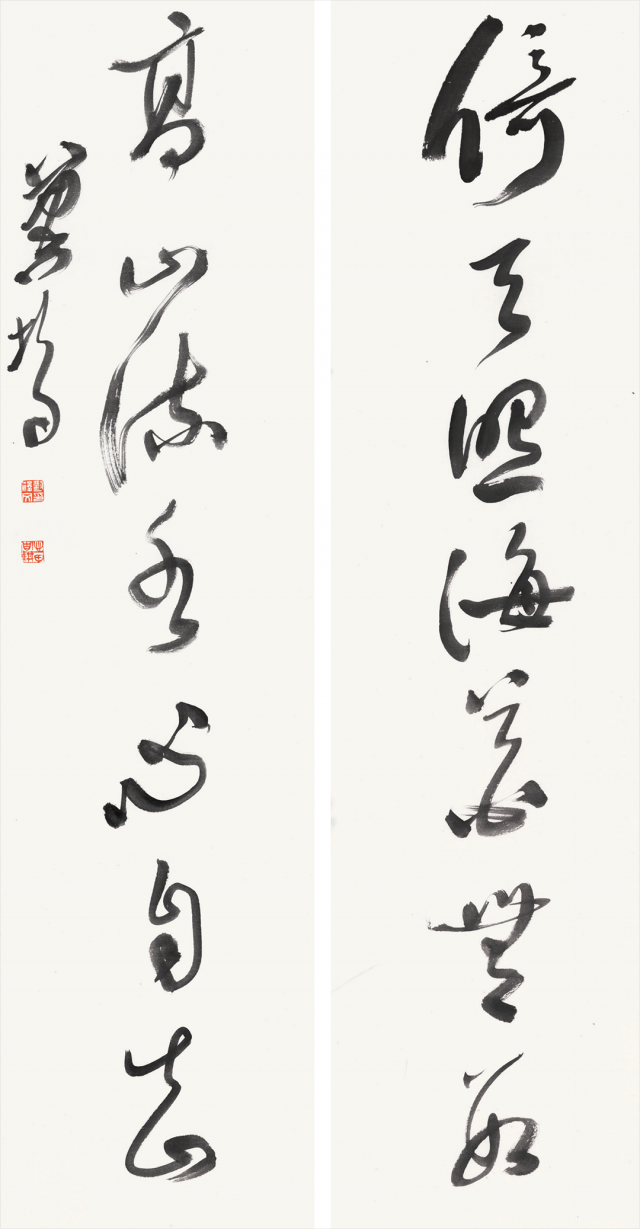 倚天照海花無數
高山流水心自知